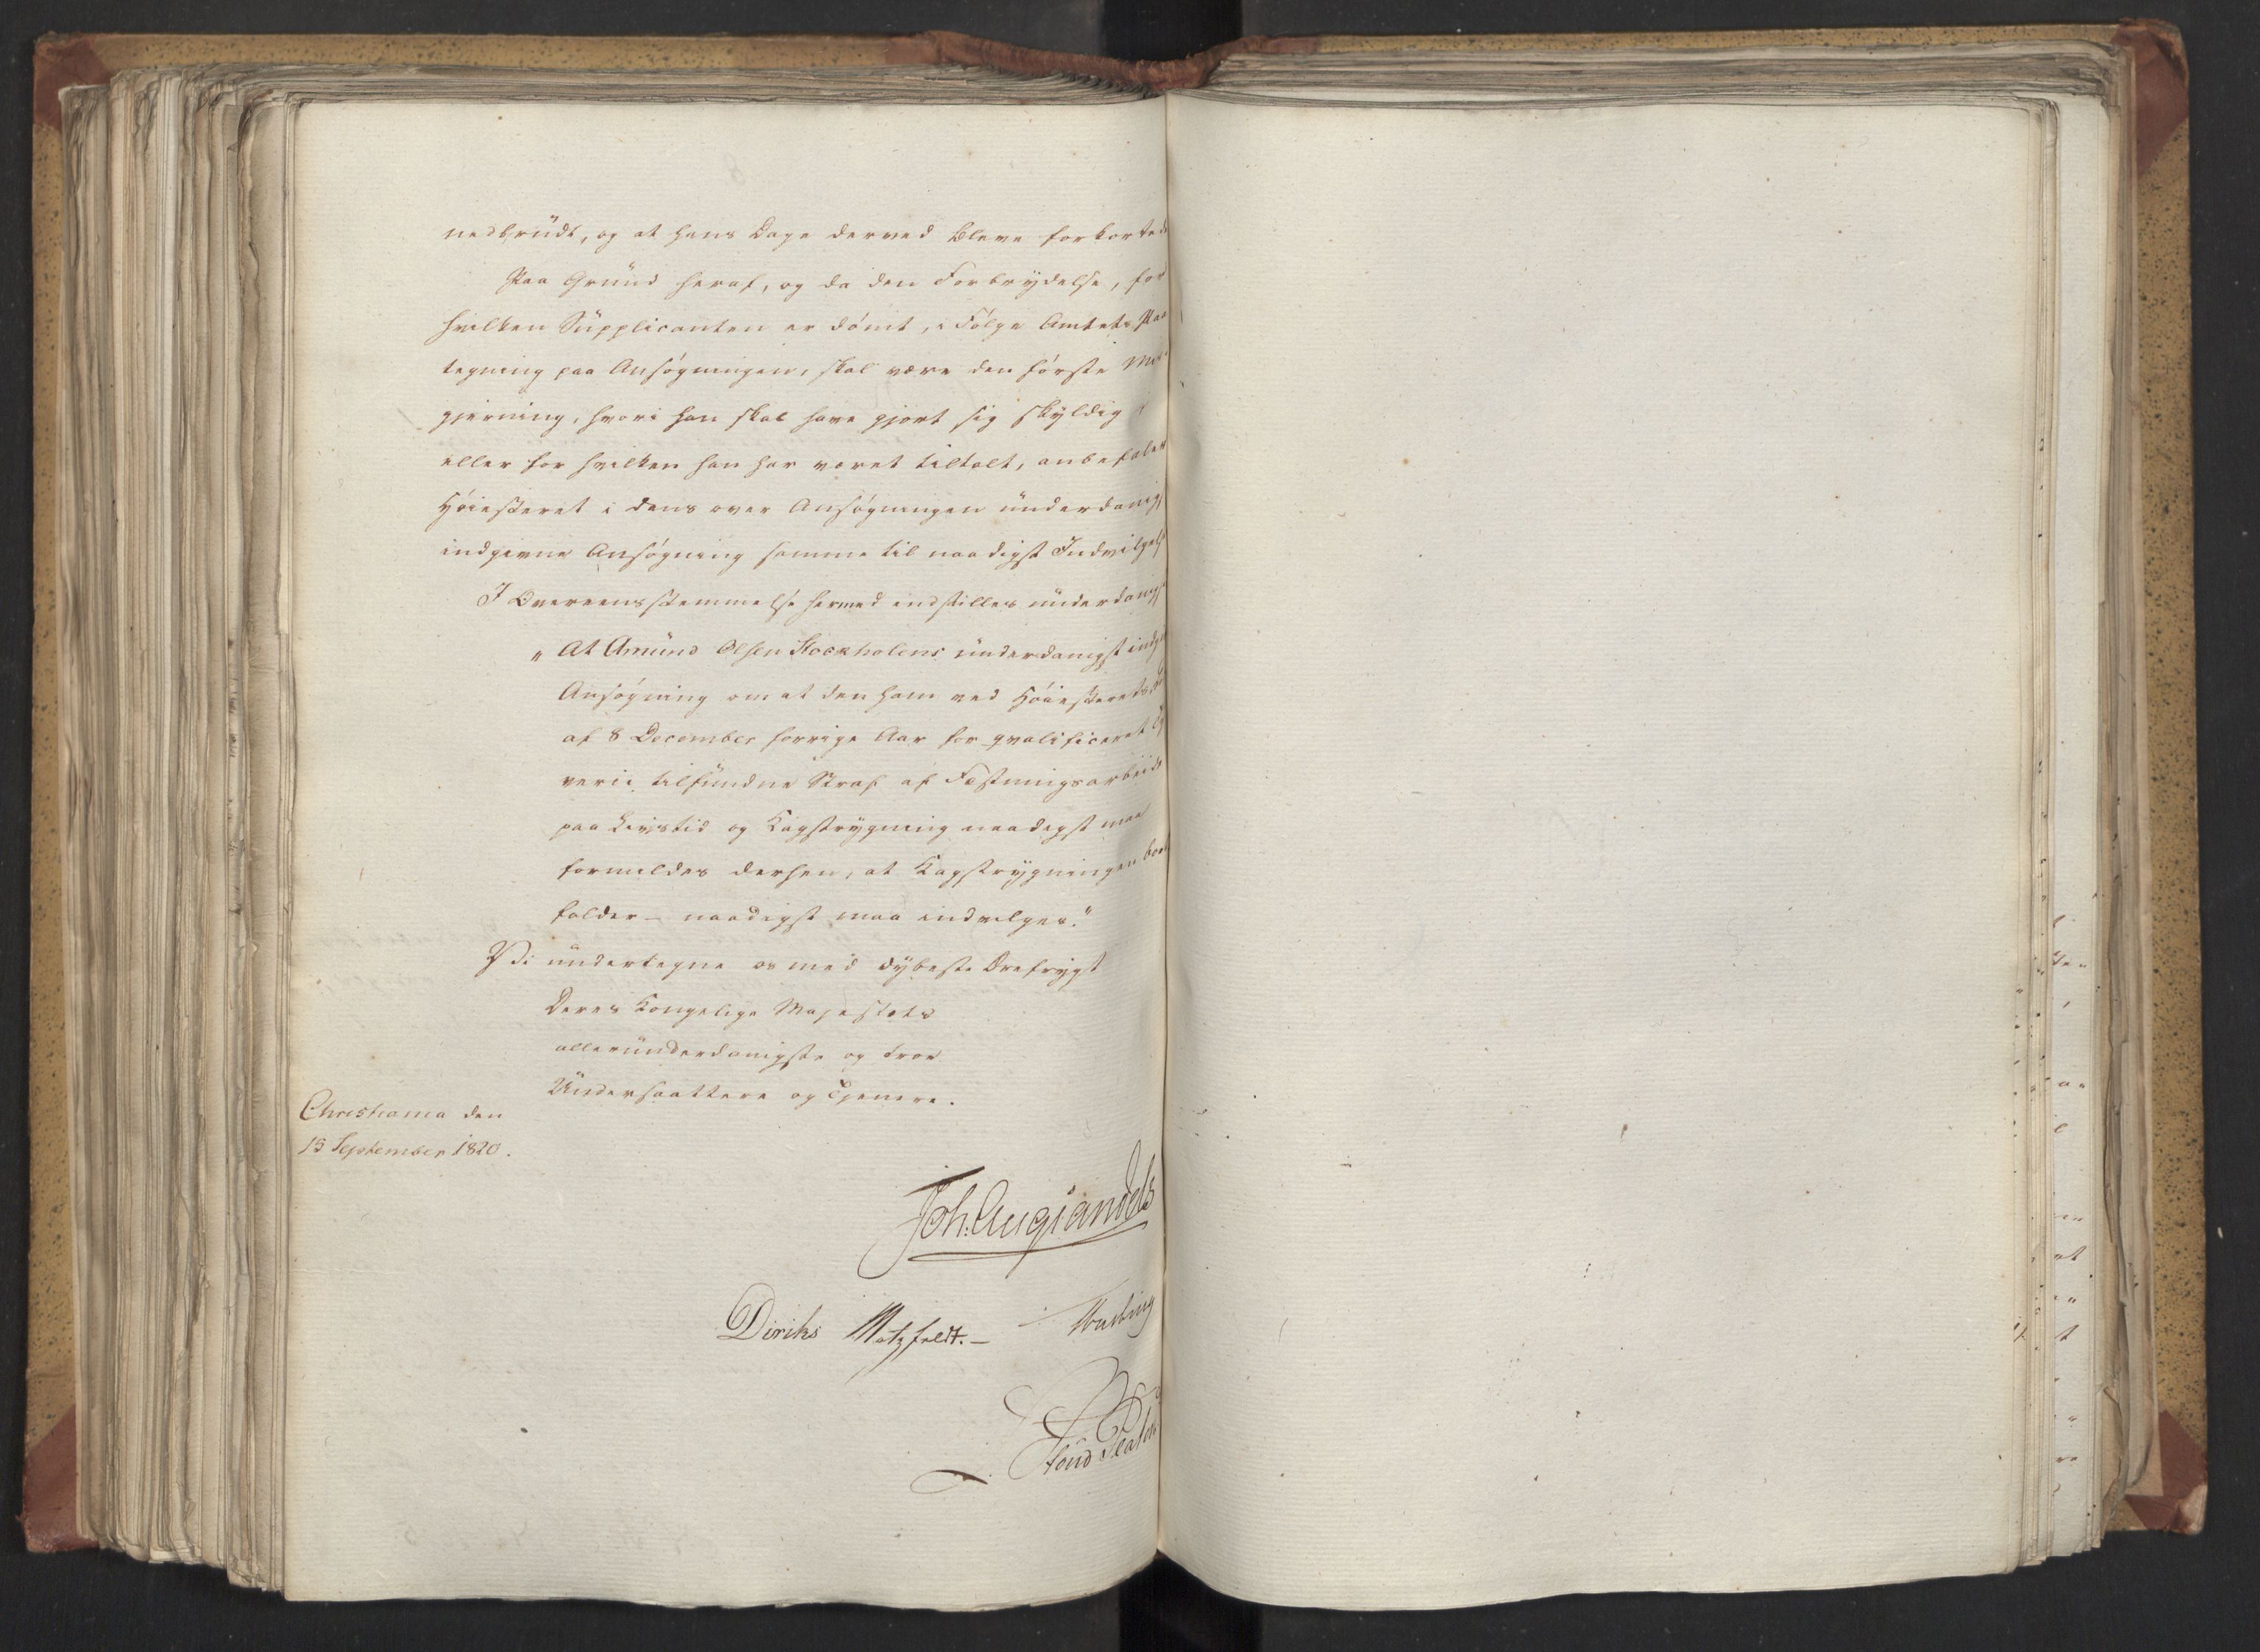 nedbrüdt, og at hans Dage derved bleve forkortede
Paa Grund heraf, og da den Forbrydelse, for
hvilken Supplicanten er dömt, i Fölge Amtets Paa
tegning paa Ansögningen, skal være den förste Mis
gjerning, hvori han skal have gjort sig skÿldig i
eller for hvilken han har været tiltalt, anbefaler
Höiesteret i dens over Ansögningen ünderdanigst
indgivne Ansögning samme til naadigst Indvilgelse
I Overeensstemmelse hermed indstilles ünderdanigst
"At Amünd Olsen Stockholens ünderdanigst indg
Ansögning om at den ham ved Höiesterets
af 8 December forrige Aar for qvalificeret Ty
verie tilfündne Straf af Fæstningsarbeide
paa Livstid og Kagstrÿgning naadigst maa
formildes derhen, at Kagstrÿgningen bort
falder - naadigst maa indvilges."
Vi ündertegne os med dÿbeste Ærefrÿgt
Deres Kongelige Majestæts
alleründerdanigste og troe
Ündersaattere og Tjenere.
Christiania den
15 September 1820.
Joh. Aug: Sandels
Diriks Motzfeldt. -